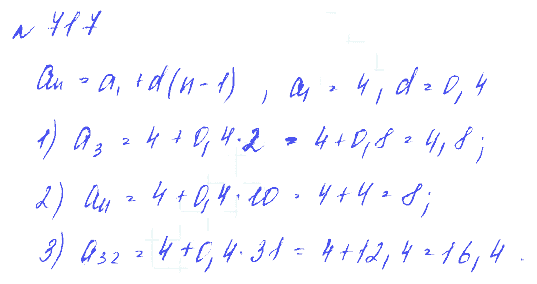 № 717
aₙ = a₁ + d(n-1), a₁ = 4, d = 0,4
1) a₃ = 4 + 0,4·2 = 4+0,8 = 4,8;
2) a₁₁ = 4 + 0,4·10 = 4+4 = 8;
3) a₃₂ = 4+0,4·31 = 4+12,4 = 16,4.